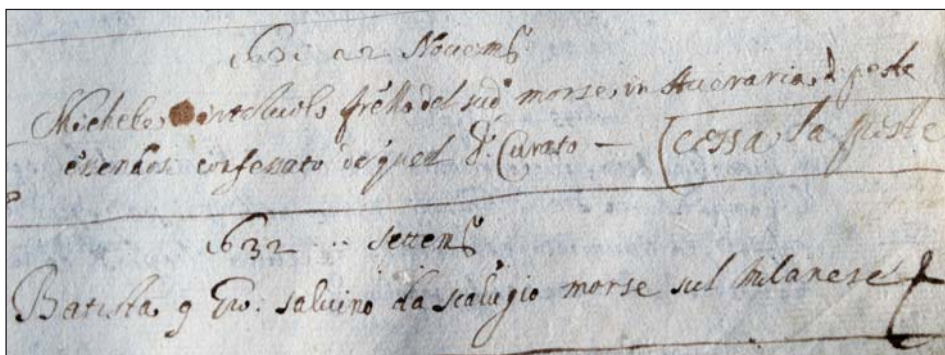 22 Novemb
Michele frello del sud morse in di peste
essendosi confessato da quel Sr Curato — cessa la peste
1632 .. settemb
Batista q Gio: salvino da scalvgio morse sul milanese